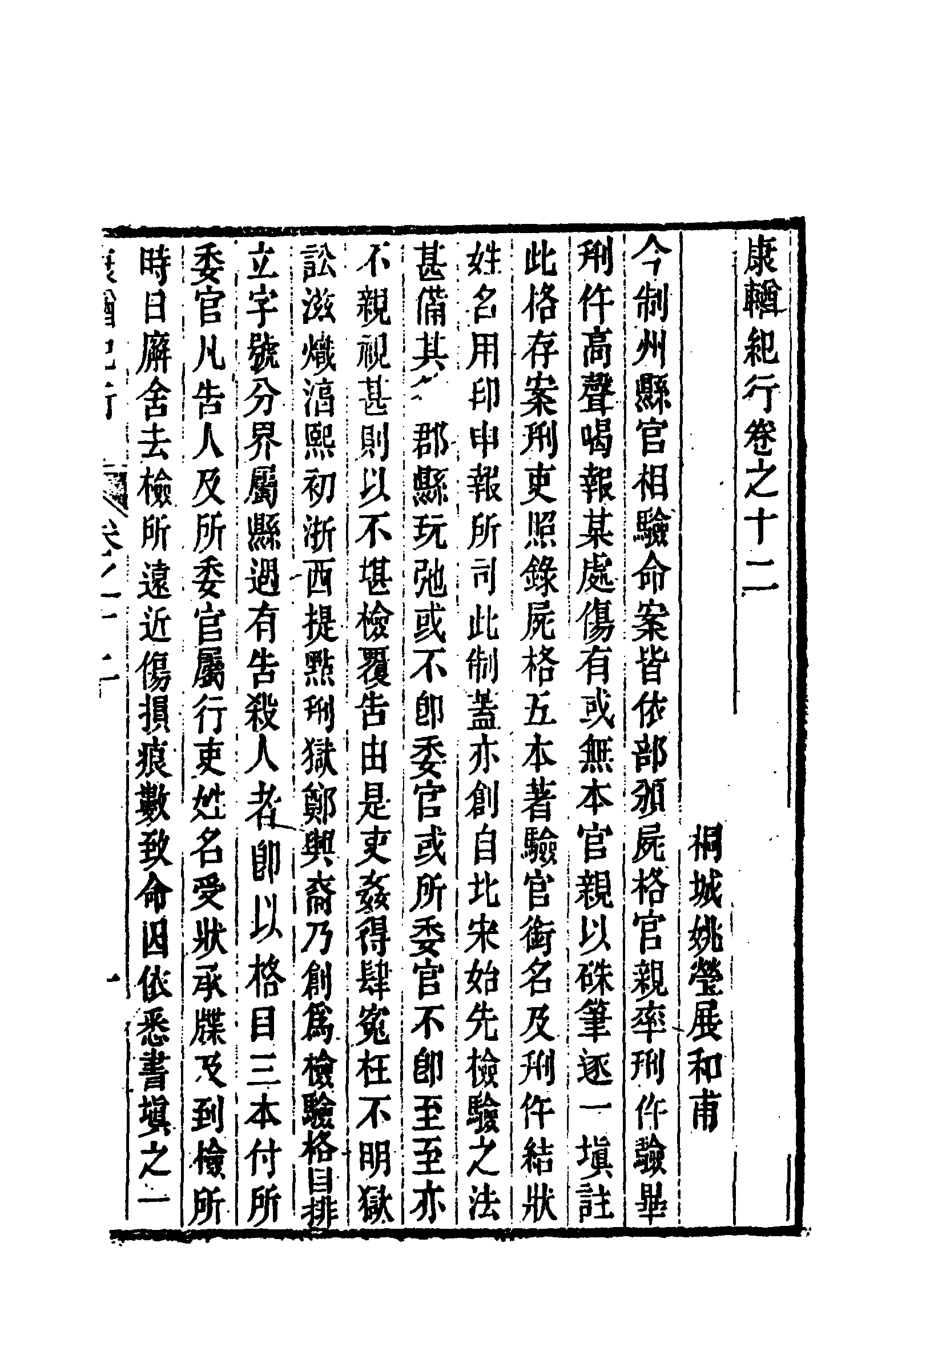 康輶紀行卷之十二
桐城姚瑩展和甫
今制州縣官相驗命案皆依部頒屍格官親率刑仵驗畢
刑仵高聲喝報某處傷有或無本官親以硃筆逐一塡註
此格存案刑吏照錄屍格五本著驗官銜名及刑仵結狀
姓名用印申報所司此制蓋亦創自北宋始先檢驗之法
甚備其郡縣玩弛或不卽委官或所委官不卽至至亦
不親視甚則以不堪檢覆告由是吏姦得肆寃枉不明獄
訟滋熾湻熙初浙西提點刑獄鄭興裔乃創爲檢驗格目排
立字號分界屬縣遇有告殺人者卽以格目三本付所
委官凡告人及所委官屬行吏姓名受狀承牒及到檢所
時日廨舍去檢所遠近傷損痕數致命因依悉書塡之一
康輶紀行 卷之十二 一